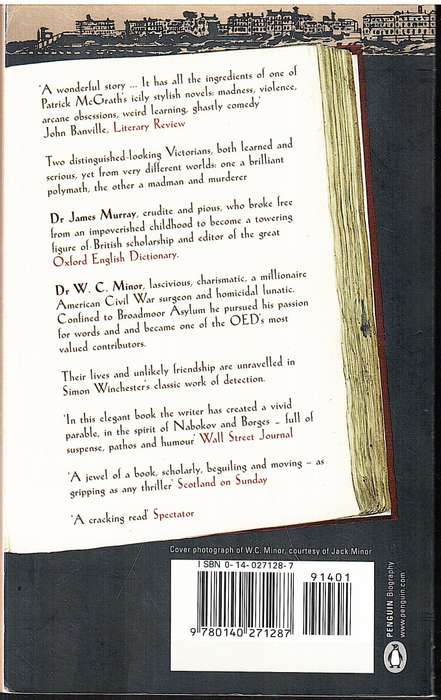 'A wonderful story ... It has all the ingredients of one of
Patrick McGrath's icily stylish novels: madness, violence,
arcane obsessions, weird learning, ghastly comedy'
John Banville, Literary Review
Two distinguished-looking Victorians, both learned and
serious, yet from very different worlds: one a brilliant
polymath, the other a madman and murderer
Dr James Murray, erudite and pious, who broke free
from an impoverished childhood to become a towering
figure of British scholarship and editor of the great
Oxford English Dictionary.
Dr W. C. Minor, lascivious, charismatic, a millionaire
American Civil War surgeon and homicidal lunatic.
Confined to Broadmoor Asylum he pursued his passion
for words and and became one of the OED's most
valued contributors.
Their lives and unlikely friendship are unravelled in
Simon Winchester's classic work of detection.
'In this elegant book the writer has created a vivid
parable, in the spirit of Nabokov and Borges – full of
suspense, pathos and humour' Wall Street Journal
'A jewel of a book, scholarly, beguiling and moving – as
gripping as any thriller' Scotland on Sunday
'A cracking read' Spectator
Cover photograph of W.C. Minor, courtesy of Jack Minor
ISBN 0-14-027128-7
91401
9 780140 271287
PENGUIN Biography
www.penguin.com